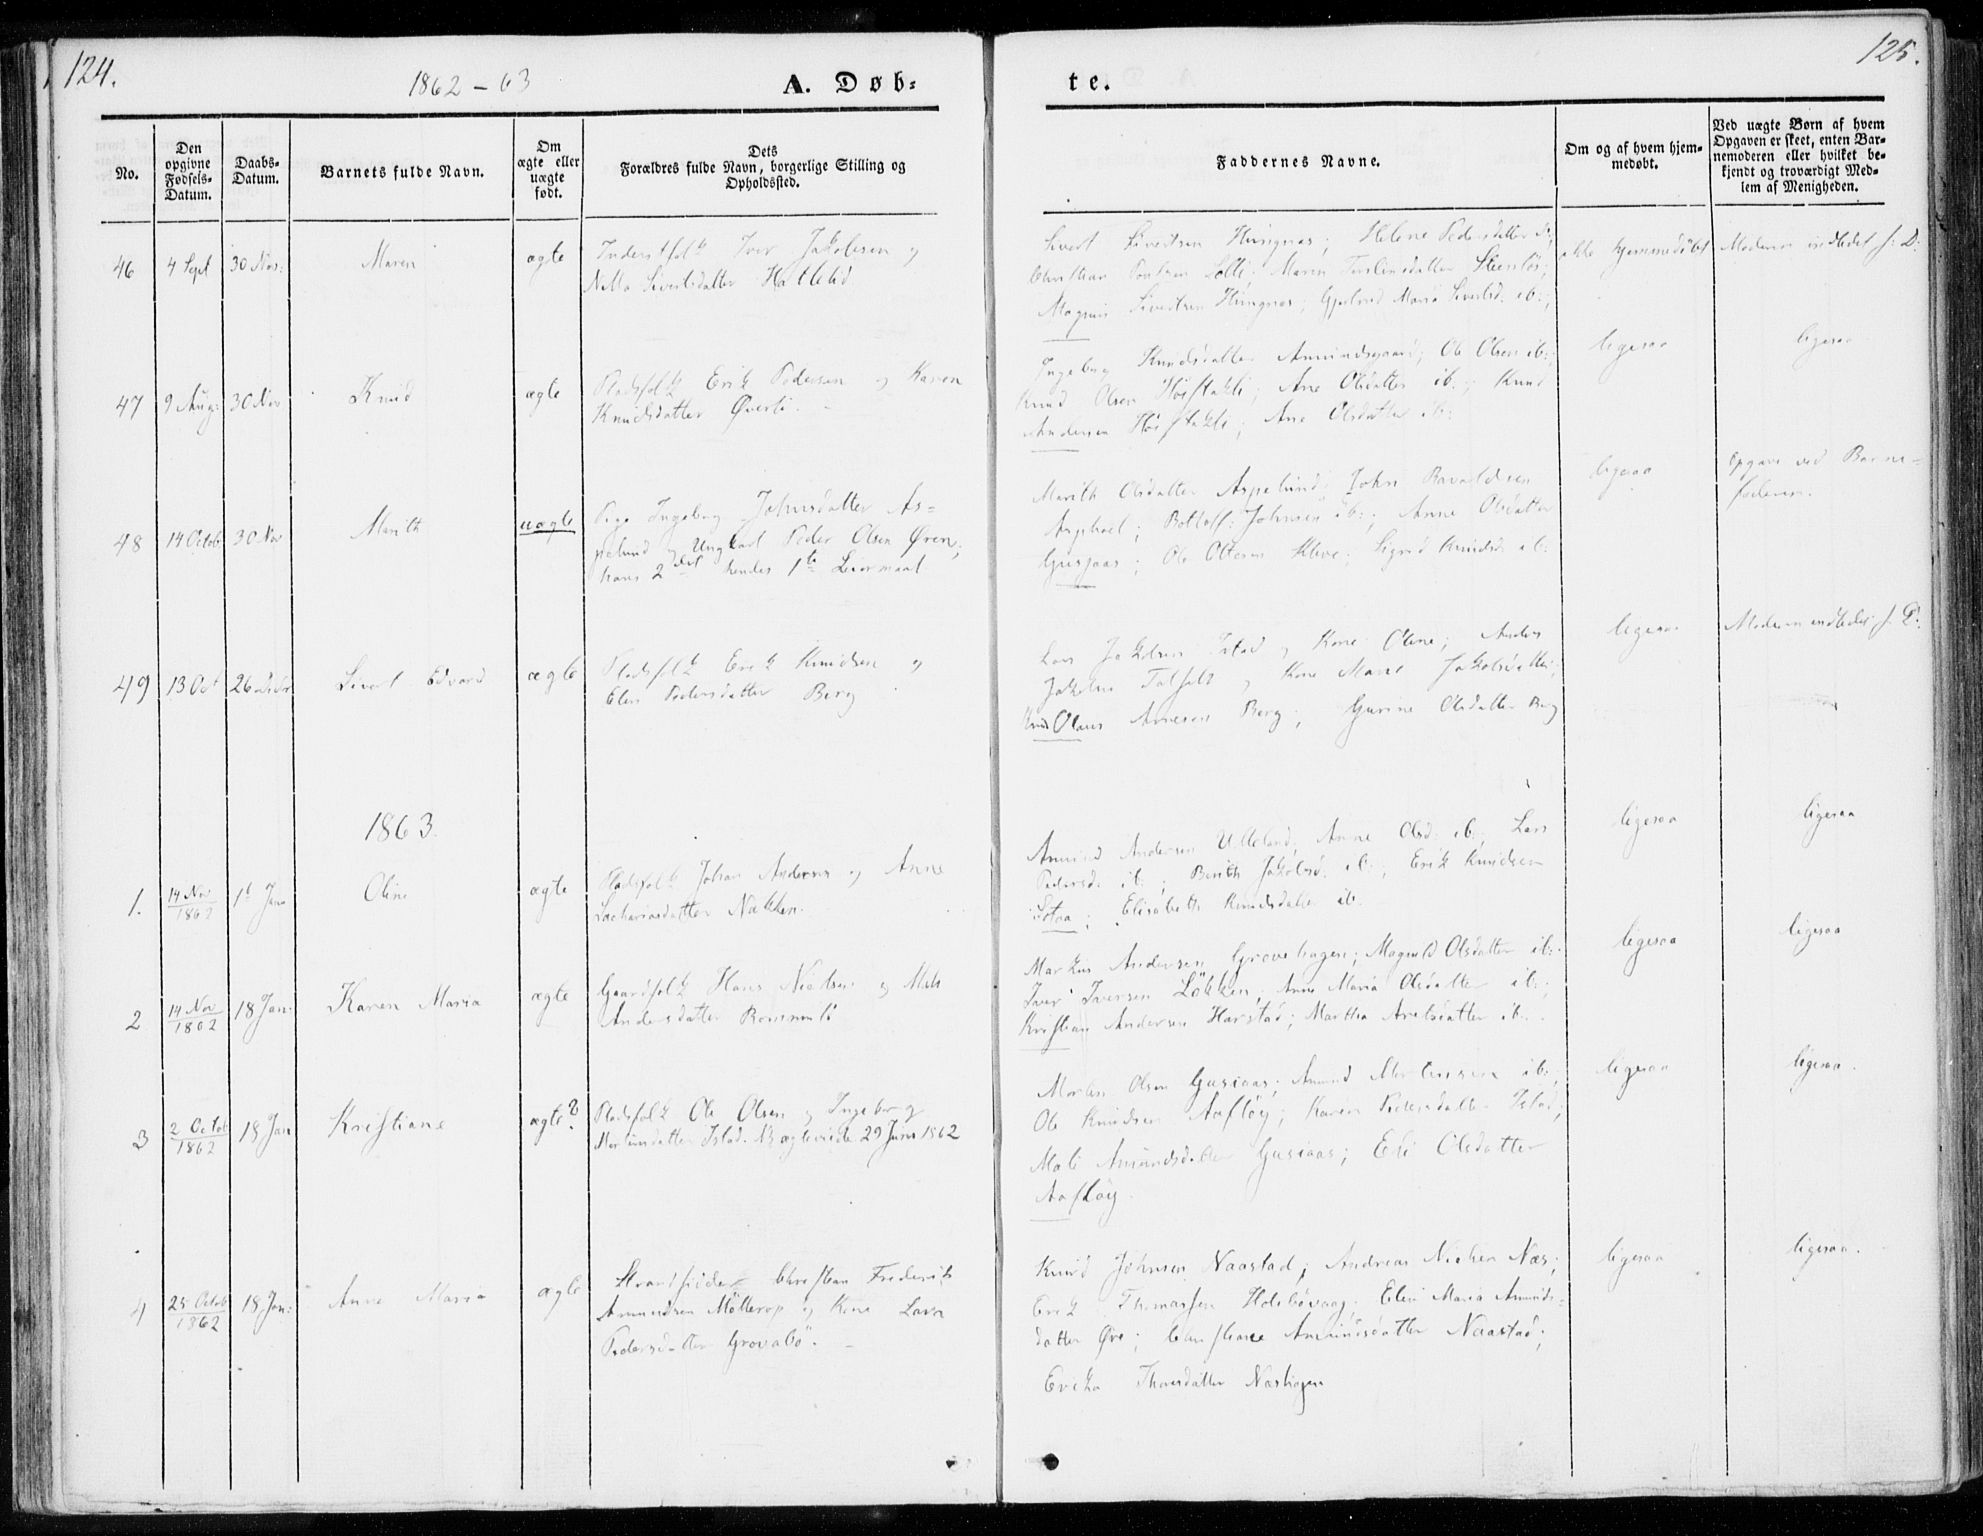 124.
1862 - 63
A. Døb-
te.
125.
No.
Den opgivne Fødsels-Datum.
Daabs-Datum.
Barnets fulde Navn.
Om ægte eller uægte født.
Dets
Forældres fulde Navn, borgerlige Stilling og
Opholdssted.
Faddernes Navne.
Om og af hvem hjem-
medøbt.
Ved uægte Børn af hvem
Opgaven er skeet, enten Bar-
nemoderen eller hvilket be-
kjendt og troværdigt Med-
lem af Menigheden.
46 4 Sept 30 Nov: Maren ægte
Iver Jakobsen og
Sivertsdatter Hatlelid
Sivert Sivertsen Hungnes; Helene Pedersdatter
Christian
Magnus Sivertsen Hungnes; Maria ib:;
ikke hjemmedøbt
Moderen indledet s. D:
47 9 Aug: 30 Nov Knud ægte
Pladsfolk Erik Pedersen og Karen
Knudsdatter Øverli.
Ingebrg Knudsdatter Amundsgaard; Ole Olsen ib:;
Knud Olsen; Ane Olsdatter ib:; Knud
Andersen; Ane Olsdatter ib:
ligesaa
ligesaa
48 14 Octob 30 Nov Marith uægte
Pige Ingebrg Johnsdatter As-
pelund og Ungkarl Peder Olsen Øren;
hans 2det hendes 1te Leiermaal
Marith Olsdatter Aspelund; John
; Johnsen ib:; Anne Olsdatter
Gusjaas; Ole; Sigrid Knudsd: ib:
ligesaa
Opgave ved Barne-
faderen.
49 13 Oct 26 Sivert Edvard ægte
Pladsfolk Erik Knudsen og
Elen Pedersdatter Berg
Lars Jakobsen Istad og Kone Oline; Anders
Jakobsen og Kone Marit Jakobsdatter;
Knud Olaus Arnesen Berg; Gurine Olsdatter Berg
ligesaa
Moderen indledet s. D:
1863.
1. 14 Nov 1862 1t Jan Oline ægte
Pladsfolk Johan Andersen og Anne
Zachariasdatter Nakken.
Amund Andersen Ulleland; Anne Olsd: ib:; Lars
Pedersd: ib:; Berith Jakobsd: ib:; Erik Knudsen
Sotaa; Elisabeth Knudsdatter ib:
ligesaa
ligesaa
2 14 Nov 1862 18 Jan: Karen Maria ægte
Gaardfolk Hans Nielsen og
Andersdatter
Markus Andersen Grovehagen; Magnild Olsdatter ib:
Iver Iversen Løkken; Anne Maria Olsdatter ib:;
Kristian Andersen Harstad; Martha ib:
ligesaa
ligesaa
3 2 Octob 1862 18 Jan Kristiane ægte?
Pladsfolk Ole Olsen og Ingeborg
Istad. NB ægteviede 29 Juni 1862
Morten Olsen Gusiaas; Amund Mortensen ib:;
Ole Knudsen Aafløy; Karen Pedersdatter Istad;
Mali Amundsdatter Gusiaas; Eli Olsdatter
Aafløy.
ligesaa
ligesaa.
4 25 Octob 1862 18 Jan: Anne Maria ægte
Strandsidder Christian Frederik
Amundsen Møllerop og Kone Lava
Pedersdatter Grovabø.
Knud Johnsen Naastad; Andreas Nielsen Næs;
Erik Thomassen; Elen Maria Amunds-
datter Øre; Christiane Amundsdatter Naastad;
Ericka Thoresdatter Næshagen
ligesaa
ligesaa.